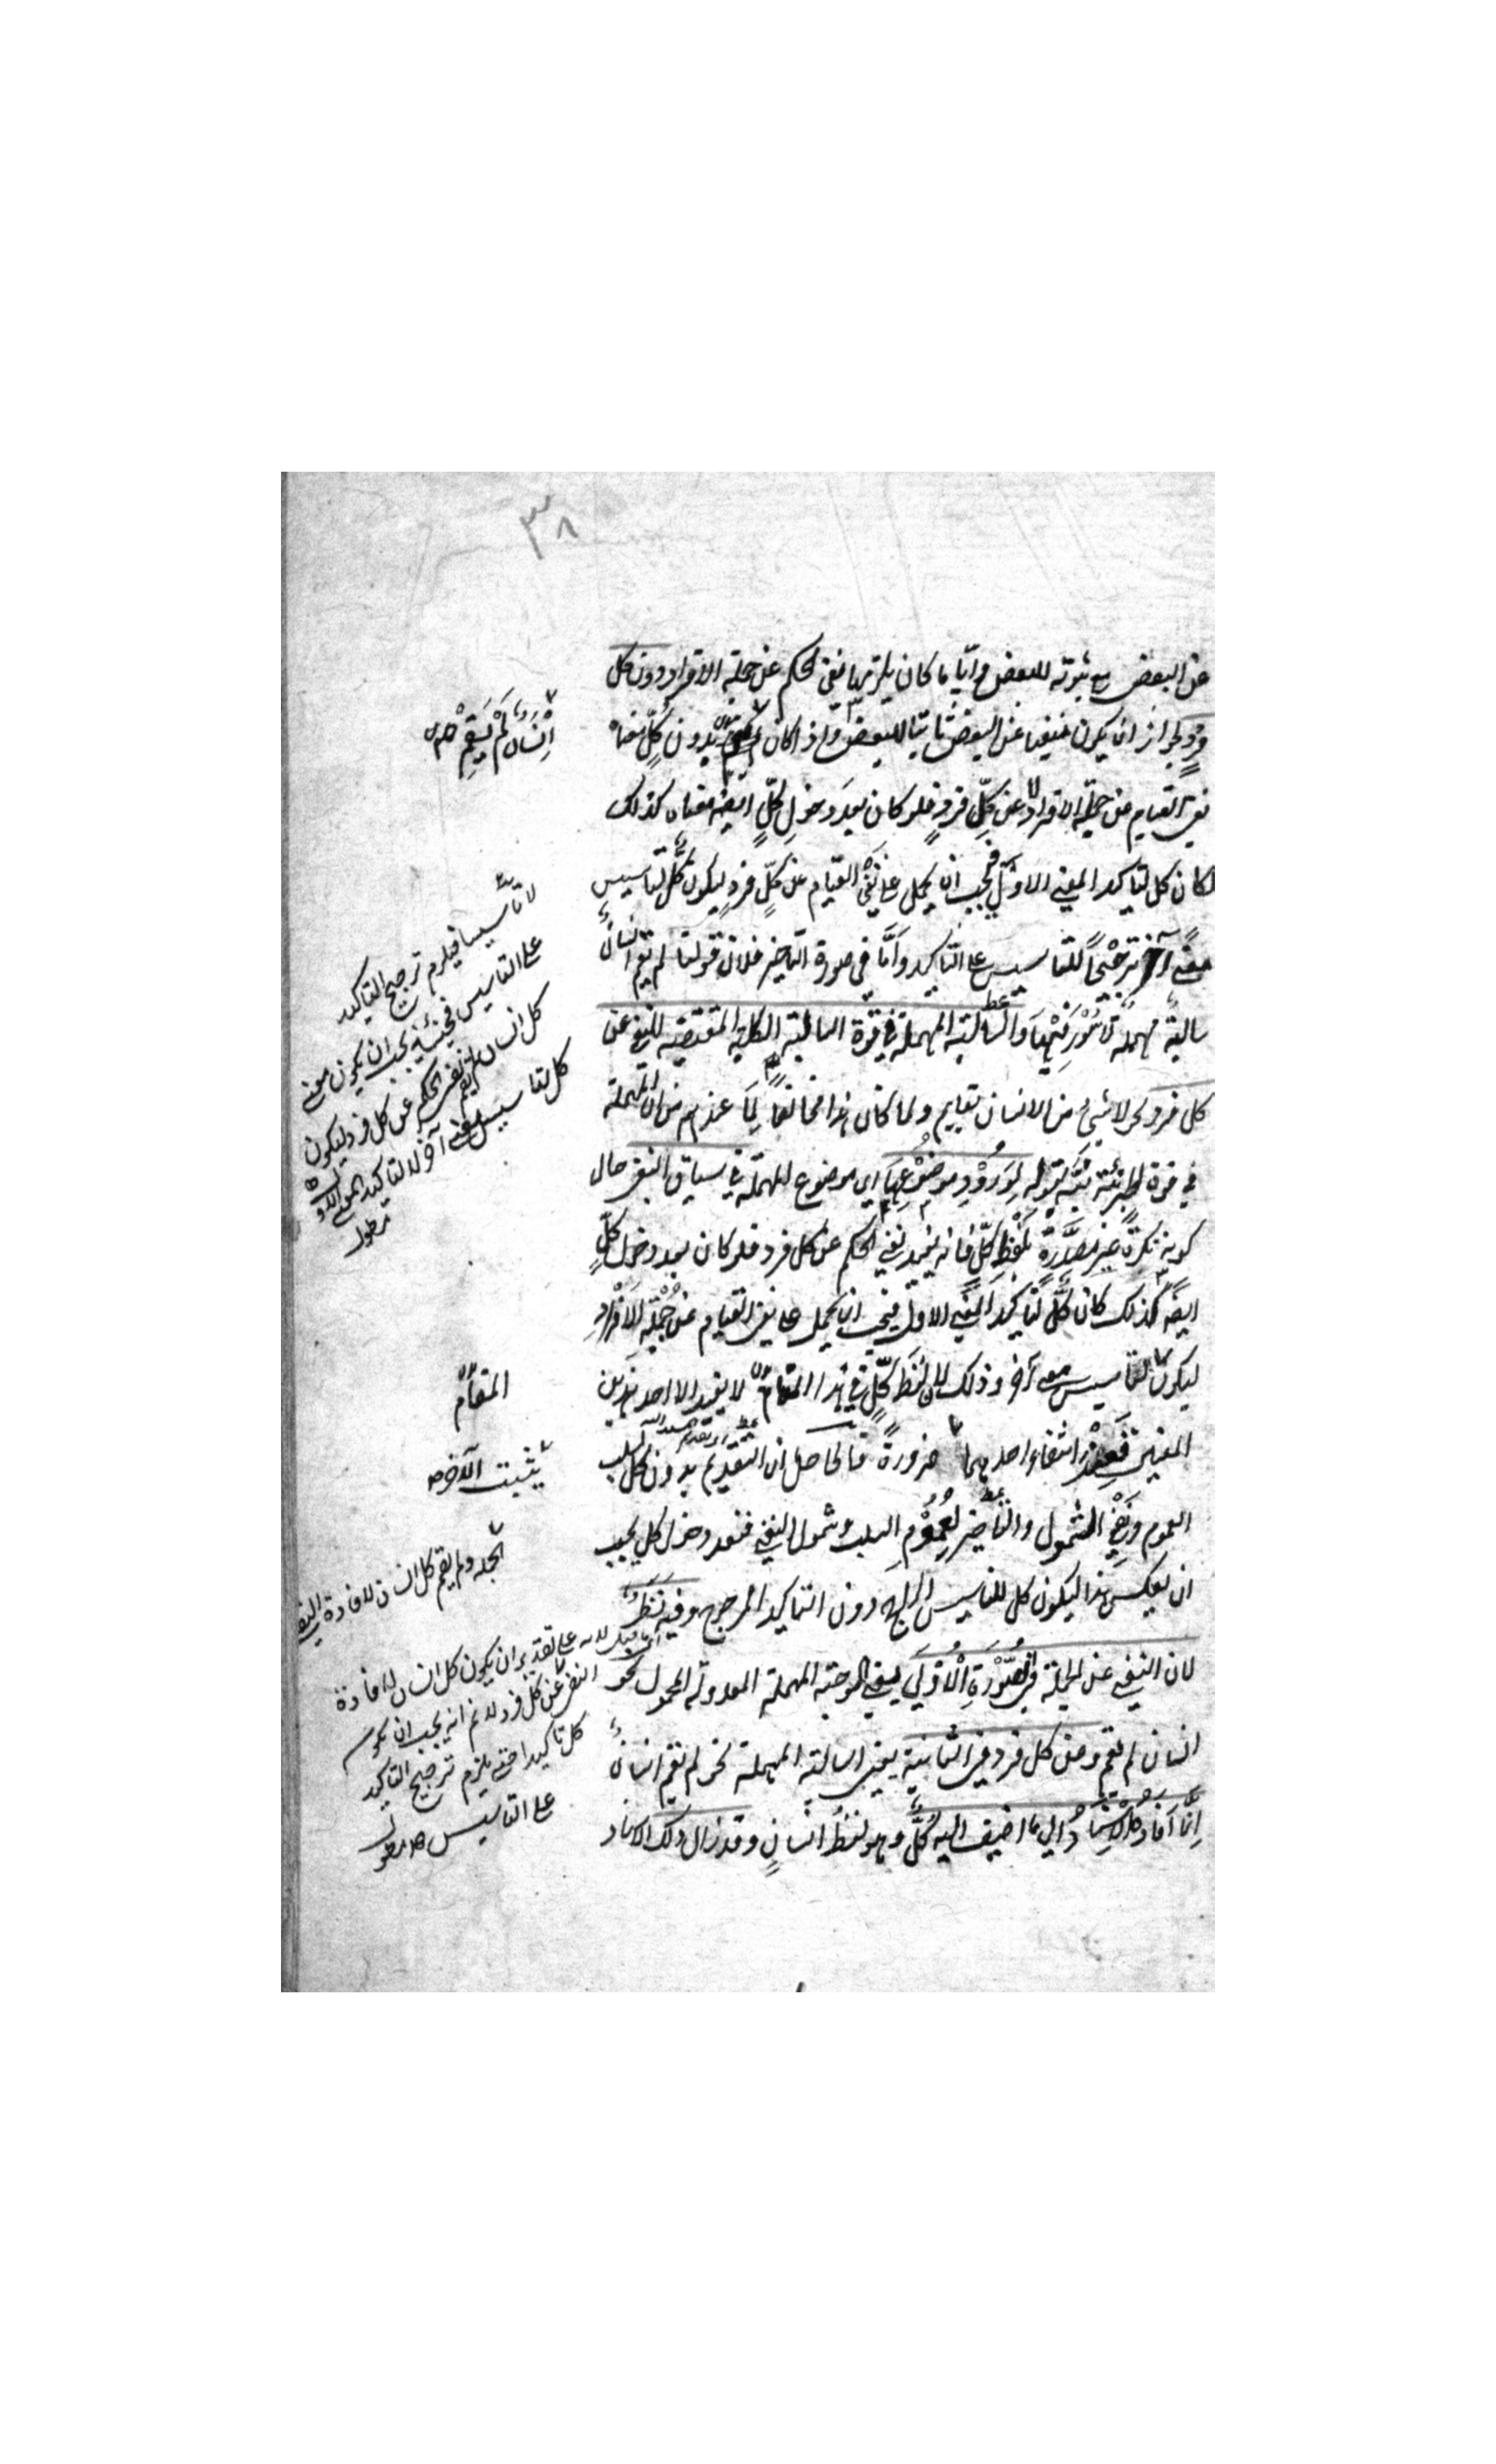 ٣٨
عن البعض مع ثبوته للبعض وايّا ما كان يلزمها نفي الحكم عن جملة الافراد دون كل
فردٍ لجواز ان يكون منفيا عن البعض ثابتا للبعض واذ اكان بدون كلٍّ معناه
نفي القيام عن جملة الافراد لا عن كلِّ فردٍ فلو كان بعدَ دخولِ كلٍّ ايضا معناه كذلك
لكان كل لتاكيد المعنى الاوّل فيجب ان يحمل على نَفْيِ القيام عن كلِّ فردٍ ليكون كلٌّ لتاسيس
معنى آخر ترجيحًا للتاسيس على التاكيد وَامَّا في صورة التاخير فلان قولنا لم يقم انسانٌ
سالبةٌ مهملةٌ لا سُوْرَ فيها وَالسالبة المهملة في قوّة السالبة الكلية المقتضية للنفي عن
كل فرد نحو لا شئ من الانسان بقايم ولما كان هذا مخالفًا لِمَا عندهم من ان المهملة
في قوة الجزئية بيّنه بقوله لِوُرُوْدِ موضُوْعِهَا اى موضوع المهملة في سياق النفى حال
كونه نكرةً غيرَ مصدَّرةٍ بلفظِ كلٍّ فانه يفيد نفي الحكم عن كل فرد فلو كان بعد دخول كلٍّ
ايضًا كذلك كان كلٌّ لتاكيد المعنى الاول فيجب ان يحمل على نفي القيام عن جُمْلَةِ الافْرَادِ
ليكون كلٌّ لتاسيس معنى آخر وذلك لان لفظ كلٍّ في هذا المقام لا يفيد الا احد هذين
المعنيين فعِنْدَ انتفاء احدهما ضرورةً فالحاصل ان التقديم بدون كل لسلب
العموم ونَفْيِ الشمول والتاخير لعُمُوْمِ السلب وشمول النفي فبعد دخول كل يجب
ان يعكس هذا ليكون كل للتاسيس الراجح دون التاكيد المرجوح وفيه نَظَرٌ
لان النفي عن الجملة في الصُّوْرَةِ الْاُوْلٰي يعني الموجبة المهملة المعدولة المحمول نحو
انسان لم يقم وعن كل فرد في الثانية يعني السالبة المهملة نحو لم يقم انسانٌ
اِنَّمَا اَفَادَهُ الْاِسْنَادُ الي ما اضيف اليه كلٌّ وهو لفظُ انسانٍ وقد زال ذلك الاسناد
اِنْسَانٌ لَمْ يَقُمْ
لا تاسيسا فيلزم ترجيح التاكيد
على التاسيس فحينئذ يجب ان يكون معنى
كل انسان لم يقم نفي الحكم عن كل فرد ليكون
كل لتاسيس معنى آخر لا لتاكيد المعنى الاول
مطول
المقام
يثبت الآخر
الجملة ولم يقم كل انسان لافادة النفي
على تقدير ان يكون كل انسان لافادة
النفي عن كل فرد لا نم انه يجب ان يكون
كل تاكيدا حتى يلزم ترجيح التاكيد
على التاسيس مطول